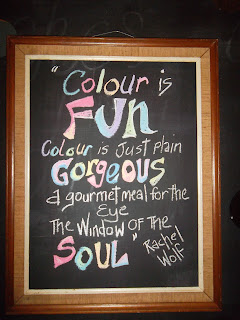 "Colour is
FUN
Colour is Just plain
GORGEOUS
a gourmet meal for the
Eye
The Window of the
SOUL"
Rachel
Wolf